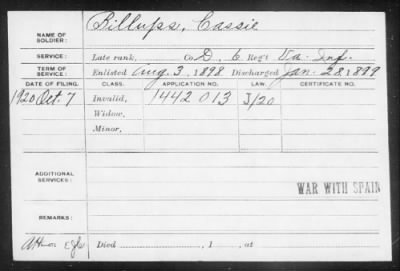 NAME OF SOLDIER: Billups, Cassie
SERVICE: Late rank, Co. D, 6 Reg't Va. Inf.
TERM OF SERVICE: Enlisted Aug. 3, 1898 Discharged Jan. 28, 1899
DATE OF FILING. CLASS. APPLICATION NO. LAW. CERTIFICATE NO.
1920 Oct. 7 Invalid, 1442013 J/20
Widow,
Minor,
ADDITIONAL SERVICES:
WAR WITH SPAIN
REMARKS:
Died , 1 , at